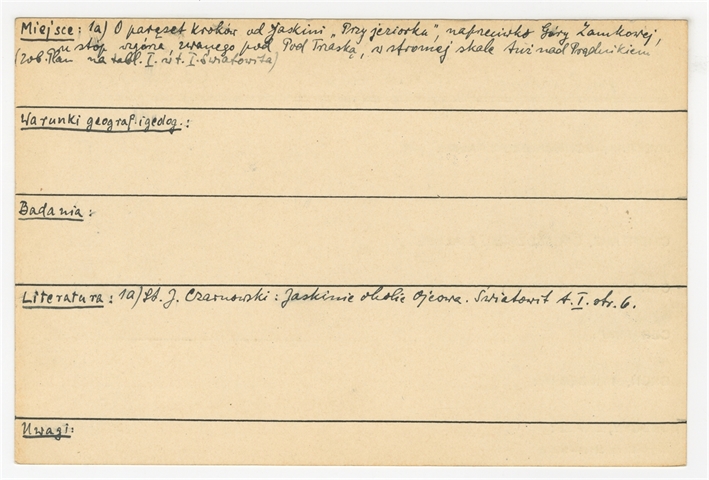 Miejsce: 1a) O paręset kroków od Jaskini „Przy jeziorku”, naprzeciwko Góry Zamkowej,
u stóp zwanego pod Pod Traską, w stromej skale tuż nad Prądnikiem
(zob. Plan na tabl. I. w t. I. Światowita)
Warunki geograf. i geolog.:
Badania:
Literatura: 1a) St. J. Czarnowski: Jaskinie okolic Ojcowa. Światowit t. I. str. 6.
Uwagi: